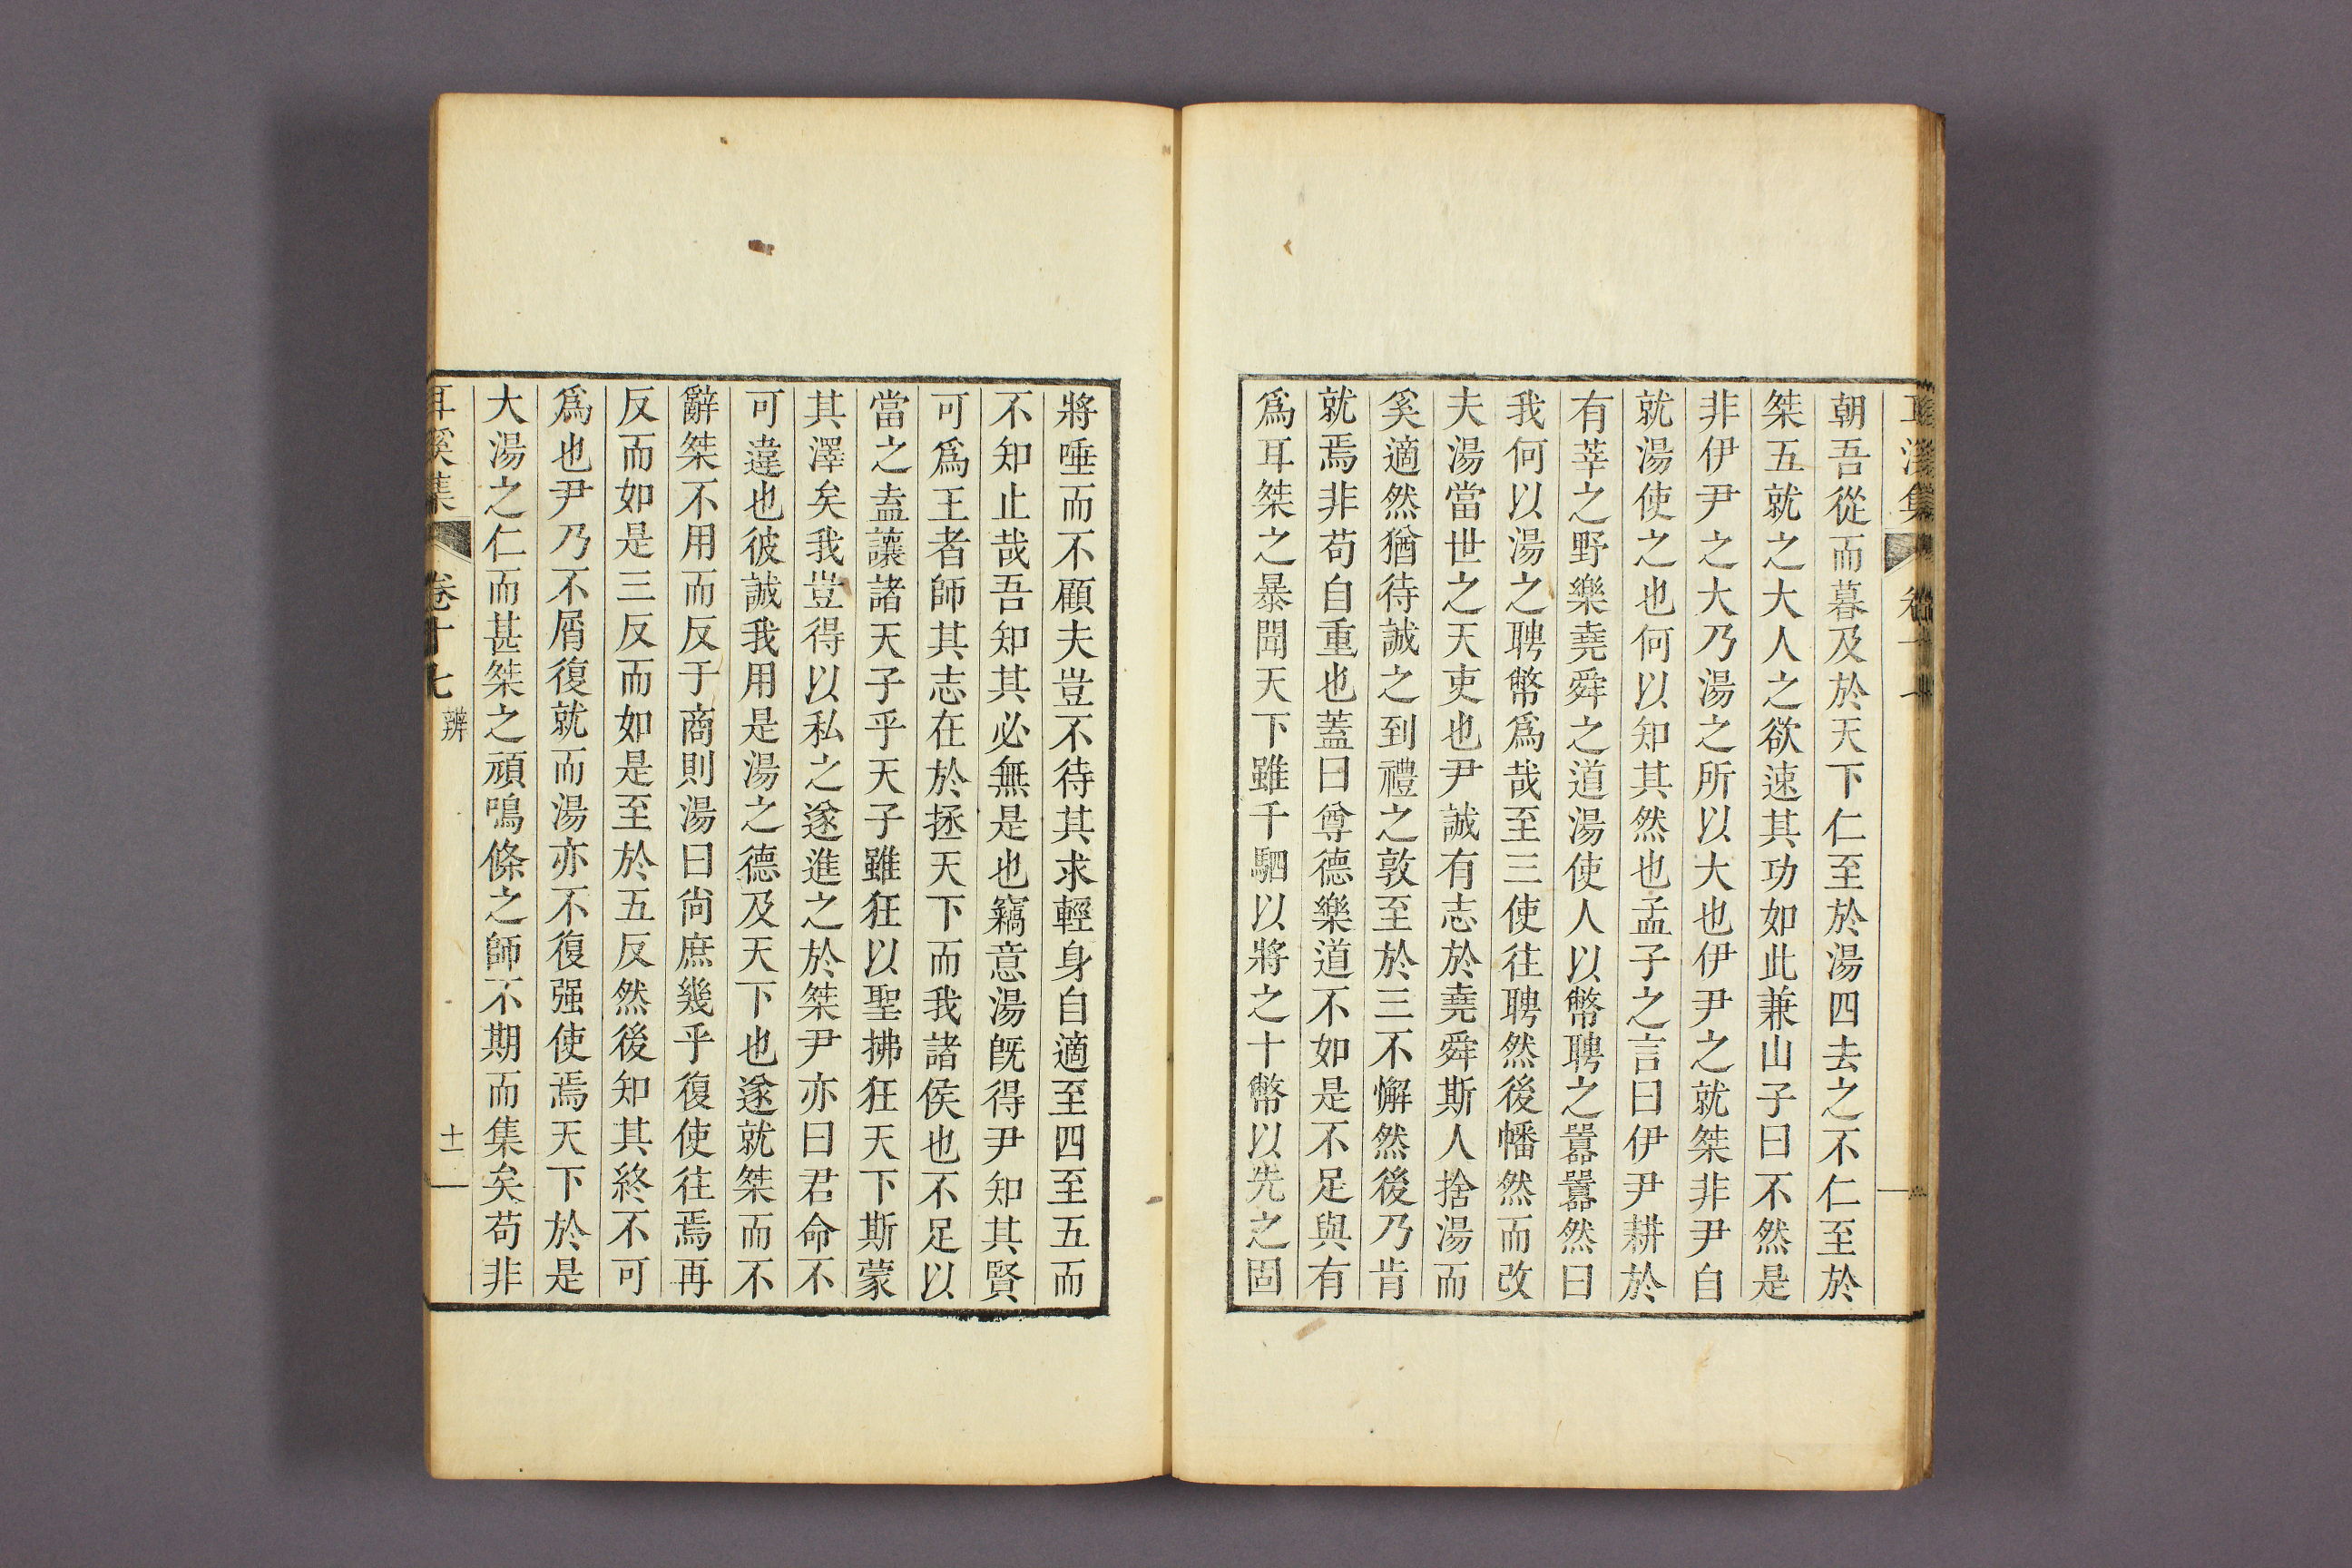 朝吾從而暮及於天下仁至於湯四去之不仁至於
桀五就之大人之欲速其功如此兼山子曰不然是
非伊尹之大乃湯之所以大也伊尹之就桀非尹自
就湯使之也何以知其然也孟子之言曰伊尹耕於
有莘之野樂堯舜之道湯使人以幣聘之囂囂然曰
我何以湯之聘幣爲哉至三使往聘然後幡然而改
夫湯當世之天吏也尹誠有志於堯舜斯人捨湯而
奚適然猶待誠之到禮之敦至於三不懈然後乃肯
就焉非苟自重也蓋曰尊德樂道不如是不足與有
爲耳桀之暴聞天下雖千駟以將之十幣以先之固
將唾而不顧夫豈不待其求輕身自適至四至五而
不知止哉吾知其必無是也竊意湯旣得尹知其賢
可爲王者師其志在於拯天下而我諸侯也不足以
當之盍讓諸天子乎天子雖狂以聖拂狂天下斯蒙
其澤矣我豈得以私之遂進之於桀尹亦曰君命不
可違也彼誠我用是湯之德及天下也遂就桀而不
辭桀不用而反于商則湯曰尙庶幾乎復使往焉再
反而如是三反而如是至於五反然後知其終不可
爲也尹乃不屑復就而湯亦不復强使焉天下於是
大湯之仁而甚桀之頑鳴條之師不期而集矣苟非
耳溪集 卷十七 辨 十一